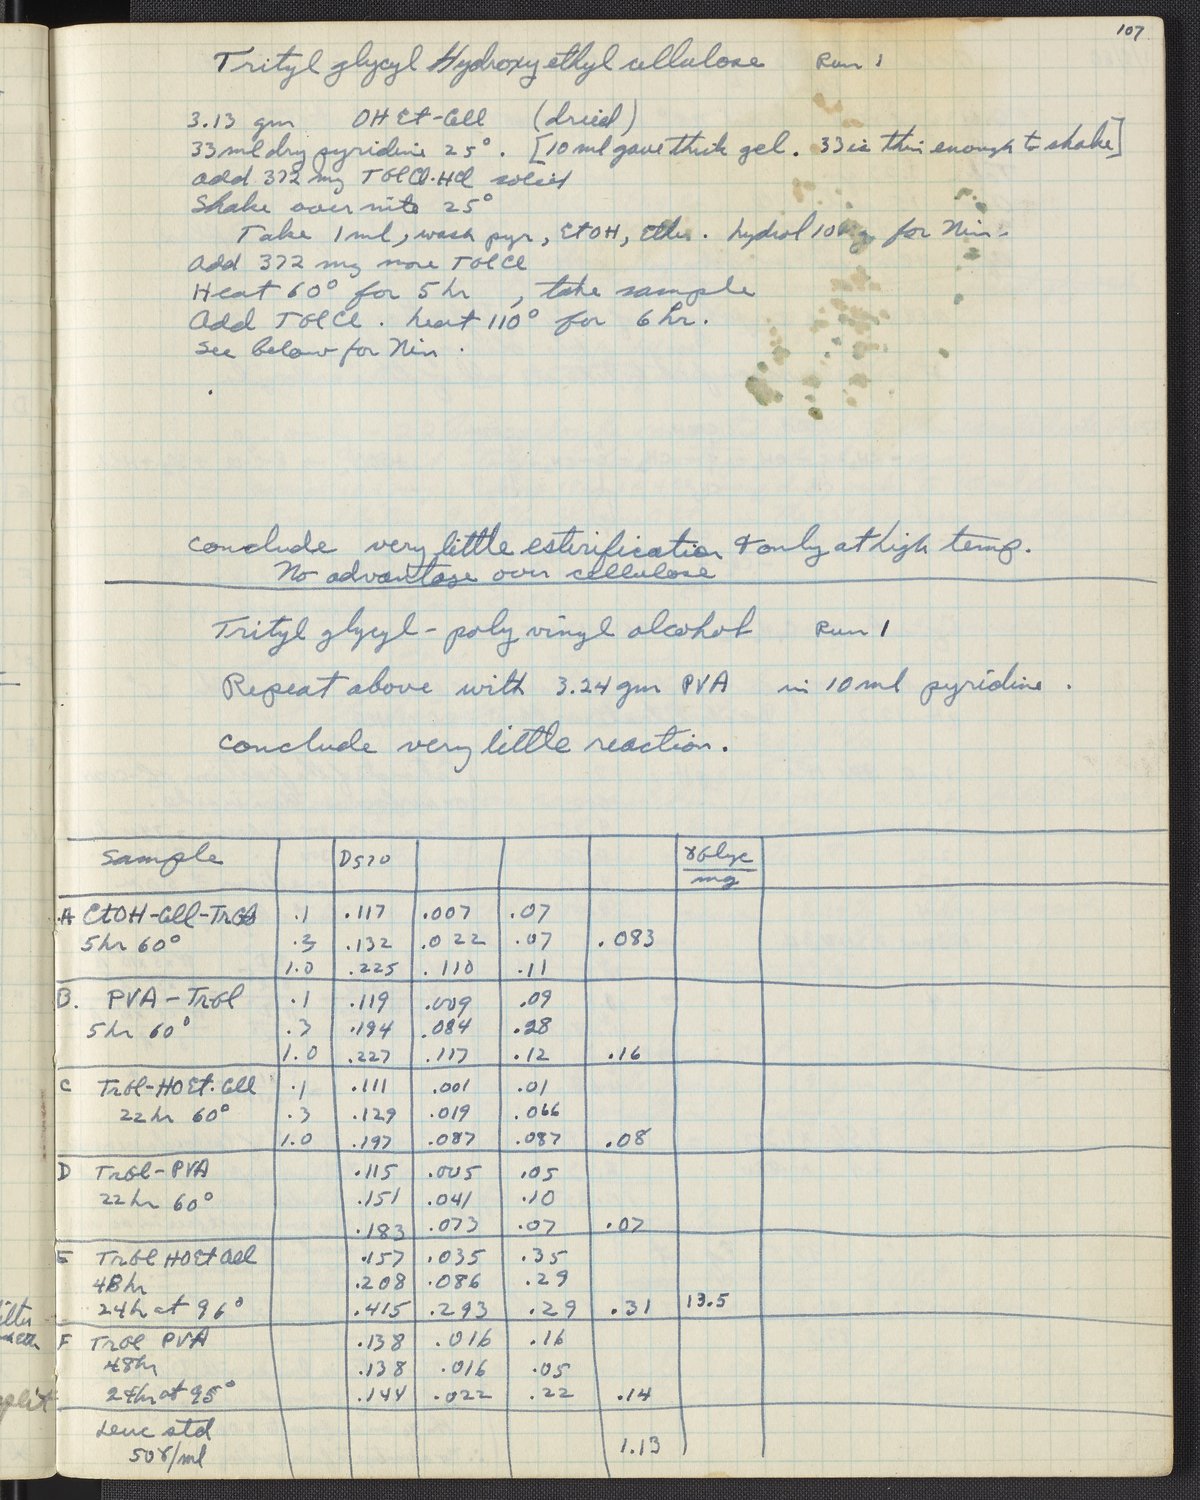 107
Trityl glycyl Hydroxy ethyl cellulose Run 1
3.13 gm OH Et-Cell (dried)
33 ml dry pyridine 25°. [10 ml gave thick gel. 33 is thin enough to shake]
add 372 mg TGlCl·HCl solid
Shake over nite 25°
Take 1 ml, wash pyr, EtOH, Ether. hydrol 10 mg for Nin.
Add 372 mg more TGlCl
Heat 60° for 5 hr, take sample
Add TGlCl. heat 110° for 6 hr.
See below for Nin.
Conclude very little esterification & only at high temp.
No advantage over cellulose
Trityl glycyl-poly vinyl alcohol Run 1
Repeat above with 3.24 gm PVA in 10 ml pyridine.
Conclude very little reaction.
Sample D570 γGlyc/mg
A EtOH-Cell-TrGl .1 .117 .007 .07
5 hr 60° .3 .132 .022 .07 .083
1.0 .225 .110 .11
B. PVA-TrGl .1 .119 .009 .09
5 hr 60° .3 .194 .084 .28
1.0 .227 .117 .12 .16
C TrGl-HOEt.Cell .1 .111 .001 .01
22 hr 60° .3 .129 .019 .066
1.0 .197 .087 .087 .08
D TrGl-PVA .115 .005 .05
22 hr 60° .151 .041 .10
.183 .073 .07 .07
E TrGl HOEt Cell .157 .035 .35
48 hr .208 .086 .29
24 hr at 96° .415 .293 .29 .31 13.5
F TrGl PVA .138 .016 .16
48 hr .138 .016 .05
24 hr at 95° .144 .022 .22 .14
Leuc std
50γ/ml 1.13